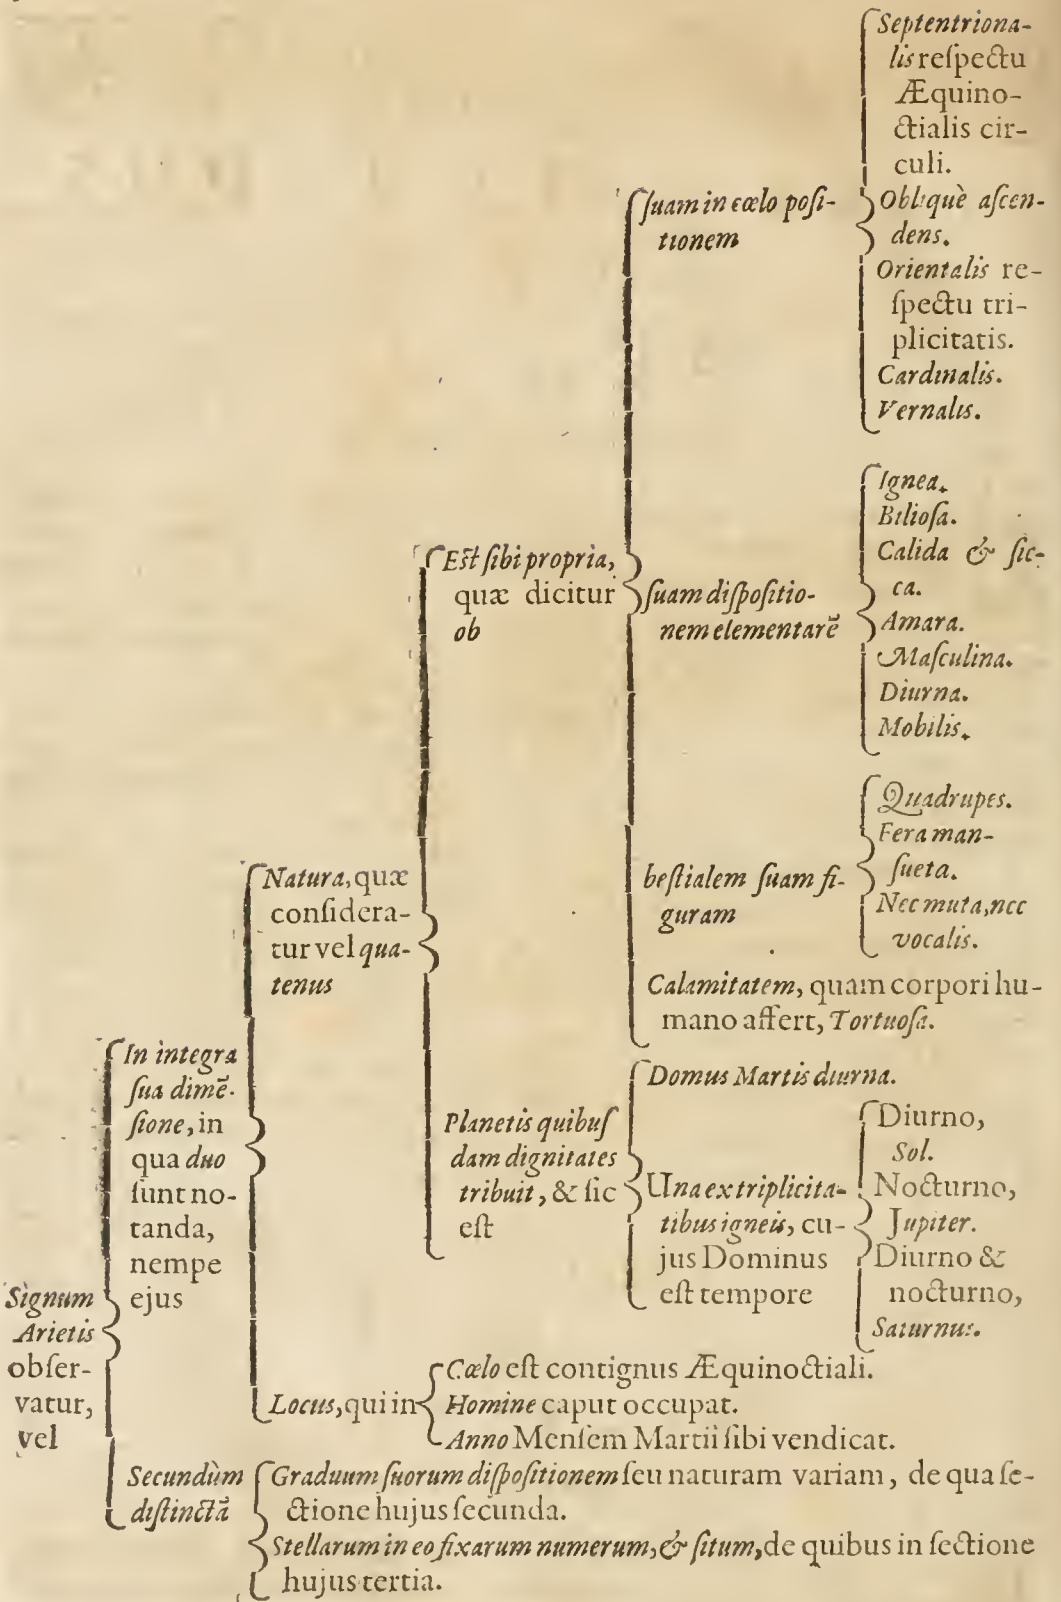 Signum
Arietis
obſer-
vatur,
vel
In integra
ſua dimē-
ſione, in
qua duo
ſunt no-
tanda,
nempe
ejus
Natura, quæ
conſidera-
tur vel qua-
tenus
Eſt ſibi propria,
quæ dicitur
ob
ſuam in cœlo poſi-
tionem
Septentriona-
lis reſpectu
Æquino-
ctialis cir-
culi.
Obliquè aſcen-
dens.
Orientalis re-
ſpectu tri-
plicitatis.
Cardinalis.
Vernalis.
ſuam diſpoſitio-
nem elementarē
Ignea.
Bilioſa.
Calida & ſic-
ca.
Amara.
Maſculina.
Diurna.
Mobilis.
beſtialem ſuam fi-
guram
Quadrupes.
Fera man-
ſueta.
Nec muta, nec
vocalis.
Calamitatem, quam corpori hu-
mano affert, Tortuoſa.
Planetis quibuſ
dam dignitates
tribuit, & ſic
eſt
Domus Martis diurna.
Una ex triplicita-
tibus igneis, cu-
jus Dominus
eſt tempore
Diurno,
Sol.
Nocturno,
Jupiter.
Diurno &
nocturno,
Saturnus.
Locus, qui in
Cœlo eſt contignus Æquinoctiali.
Homine caput occupat.
Anno Menſem Martii ſibi vendicat.
Secundùm
diſtinctā
Graduum ſuorum diſpoſitionem ſeu naturam variam, de qua ſe-
ctione hujus ſecunda.
Stellarum in eo fixarum numerum, & ſitum, de quibus in ſectione
hujus tertia.